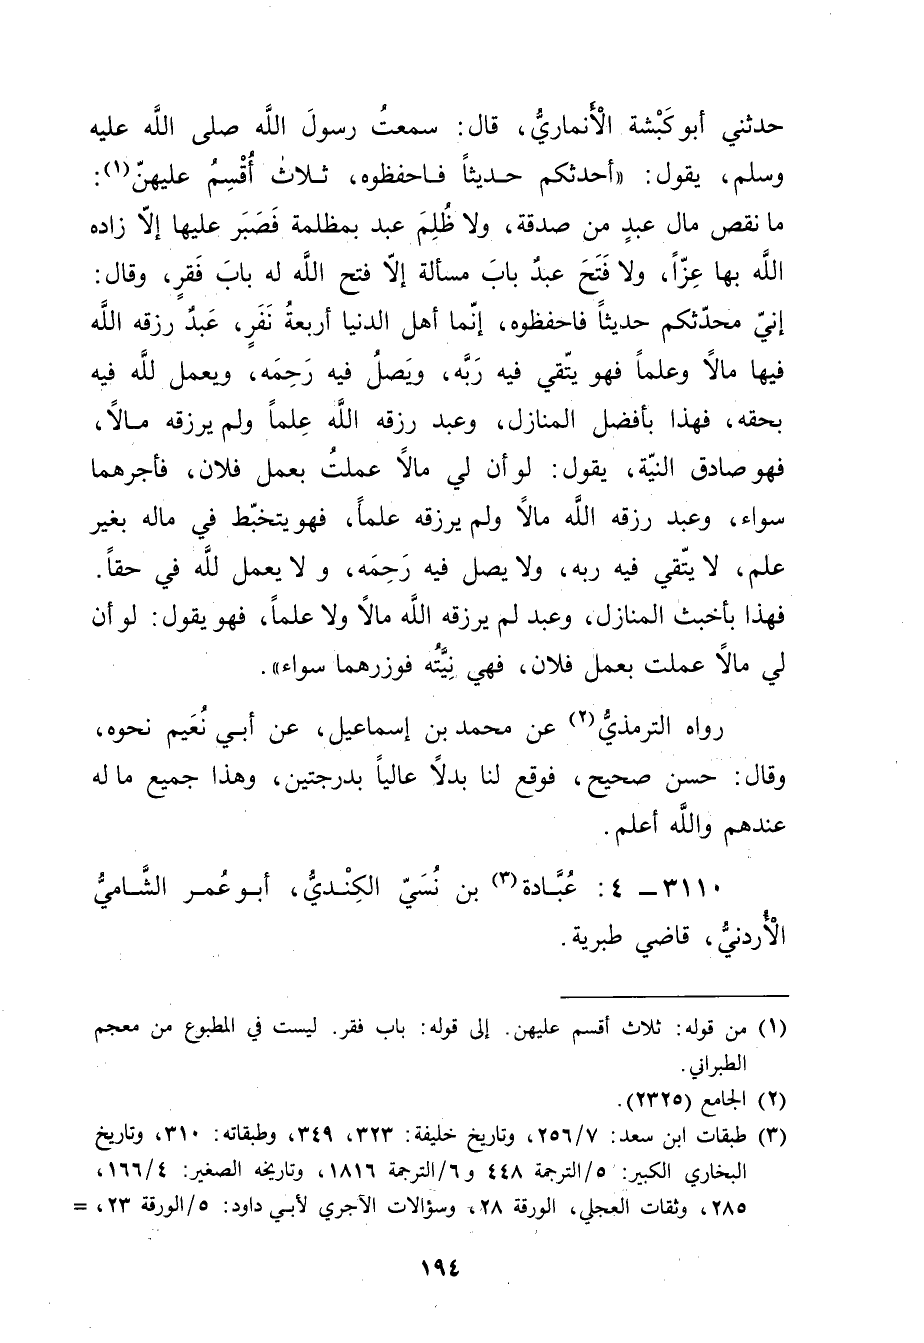 حدثني أبو كَبْشة الأَنماريُّ، قال: سمعتُ رسولَ اللَّه صلى اللَّه عليه
وسلم، يقول: «أحدثكم حديثاً فاحفظوه، ثلاث أُقْسِمُ عليهنّ(١):
ما نقص مال عبدٍ من صدقة، ولا ظُلِمَ عبد بمظلمة فَصَبَر عليها إلاّ زاده
اللَّه بها عِزّاً، ولا فَتَحَ عبدٌ بابَ مسألة إلاّ فتح اللَّه له بابَ فَقرٍ، وقال:
إنيّ محدّثكم حديثاً فاحفظوه، إنّما أهل الدنيا أربعةُ نَفَرٍ، عَبدٌ رزقه اللَّه
فيها مالاً وعلماً فهو يتّقي فيه رَبَّه، ويَصلُ فيه رَحِمَه، ويعمل للَّه فيه
بحقه، فهذا بأفضل المنازل، وعبد رزقه اللَّه عِلماً ولم يرزقه مالاً،
فهو صادق النيّة، يقول: لو أن لي مالاً عملتُ بعمل فلان، فأجرهما
سواء، وعبد رزقه اللَّه مالاً ولم يرزقه علماً، فهو يتخبّط في ماله بغير
علم، لا يتّقي فيه ربه، ولا يصل فيه رَحِمَه، و لا يعمل للَّه في حقاً.
فهذا بأخبث المنازل، وعبد لم يرزقه اللَّه مالاً ولا علماً، فهو يقول: لو أن
لي مالاً عملت بعمل فلان، فهي نِيَّتُه فوزرهما سواء».
رواه الترمذيُّ(٢) عن محمد بن إسماعيل، عن أبي نُعَيم نحوه،
وقال: حسن صحيح، فوقع لنا بدلاً عالياً بدرجتين، وهذا جميع ما له
عندهم واللَّه أعلم.
٣١١٠ ــ ٤: عُبَّادة(٣) بن نُسَيّ الكِنْديُّ، أبو عُمر الشَّاميُّ
الأُردنيُّ، قاضي طبرية.
(١) من قوله: ثلاث أقسم عليهن. إلى قوله: باب فقر. ليست في المطبوع من معجم
الطبراني.
(٢) الجامع (٢٣٢٥).
(٣) طبقات ابن سعد: ٢٥٦/٧، وتاريخ خليفة: ٣٢٣، ٣٤٩، وطبقاته: ٣١٠، وتاريخ
البخاري الكبير: ٥/الترجمة ٤٤٨ و٦/الترجمة ١٨١٦، وتاريخه الصغير: ١٦٦/٤،
٢٨٥، وثقات العجلي، الورقة ٢٨، وسؤالات الآجري لأبي داود: ٥/الورقة ٢٣، =
١٩٤